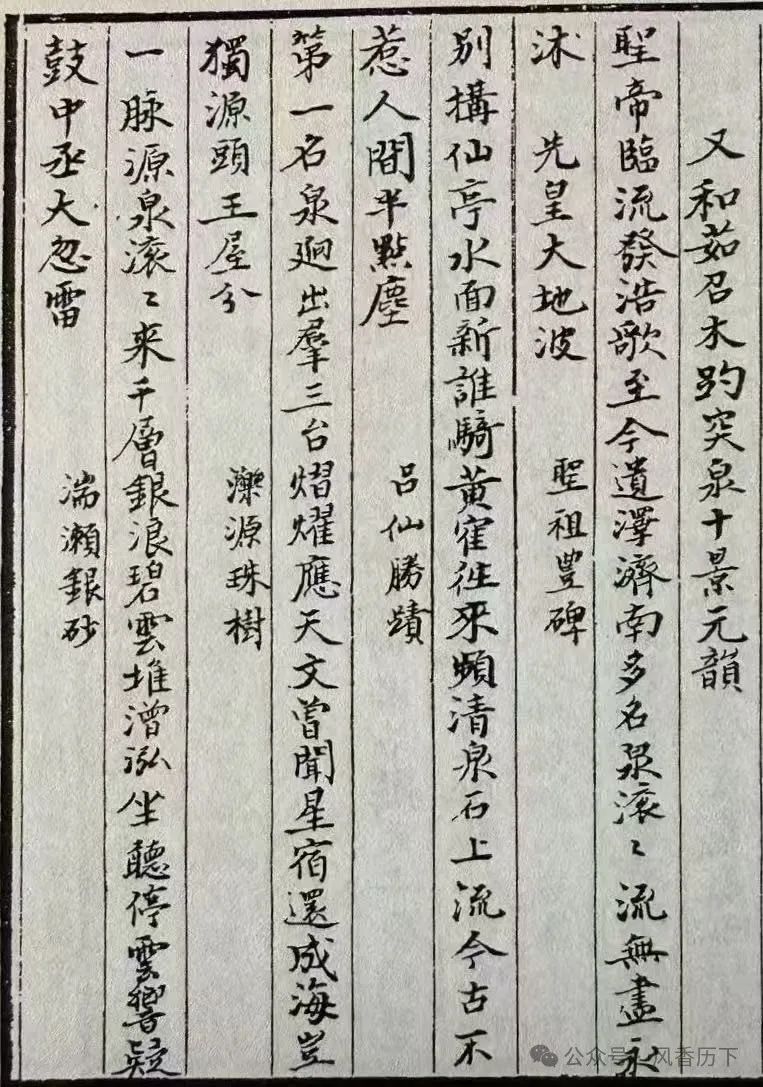 又和茹召木趵突泉十景元韻
聖帝臨流發浩歌至今遺澤濟南多名泉滚〻流無盡永
沐 先皇大地波 聖祖豊碑
别搆仙亭水面新誰騎黄隺往来頻清泉石上流今古不
惹人間半點塵 吕仙勝蹟
第一名泉廻出羣三台熠燿應天文曽聞星宿還成海豈
獨源頭王屋分 濼源珠樹
一脉源泉滚〻来千層銀浪碧雲堆澄泓坐聽停雲響疑
鼓中丞大忽雷 湍瀬銀砂
公众号 风香历下